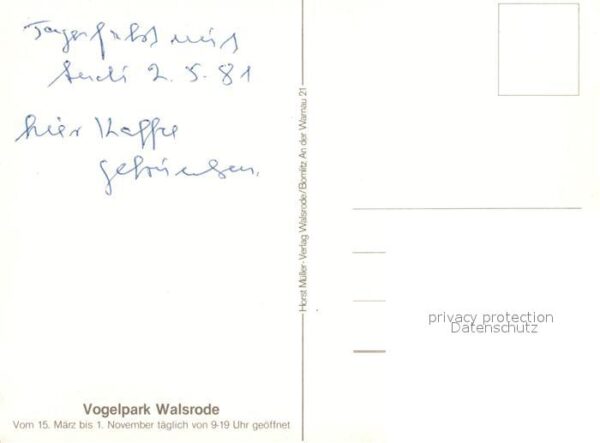 Tagesfahrt mit
Suchi 2.5.81
hier Kaffee
getrunken.
Horst Müller-Verlag Walsrode/Bomlitz An der Warnau 21
privacy protection
Datenschutz
Vogelpark Walsrode
Vom 15. März bis 1. November täglich von 9-19 Uhr geöffnet